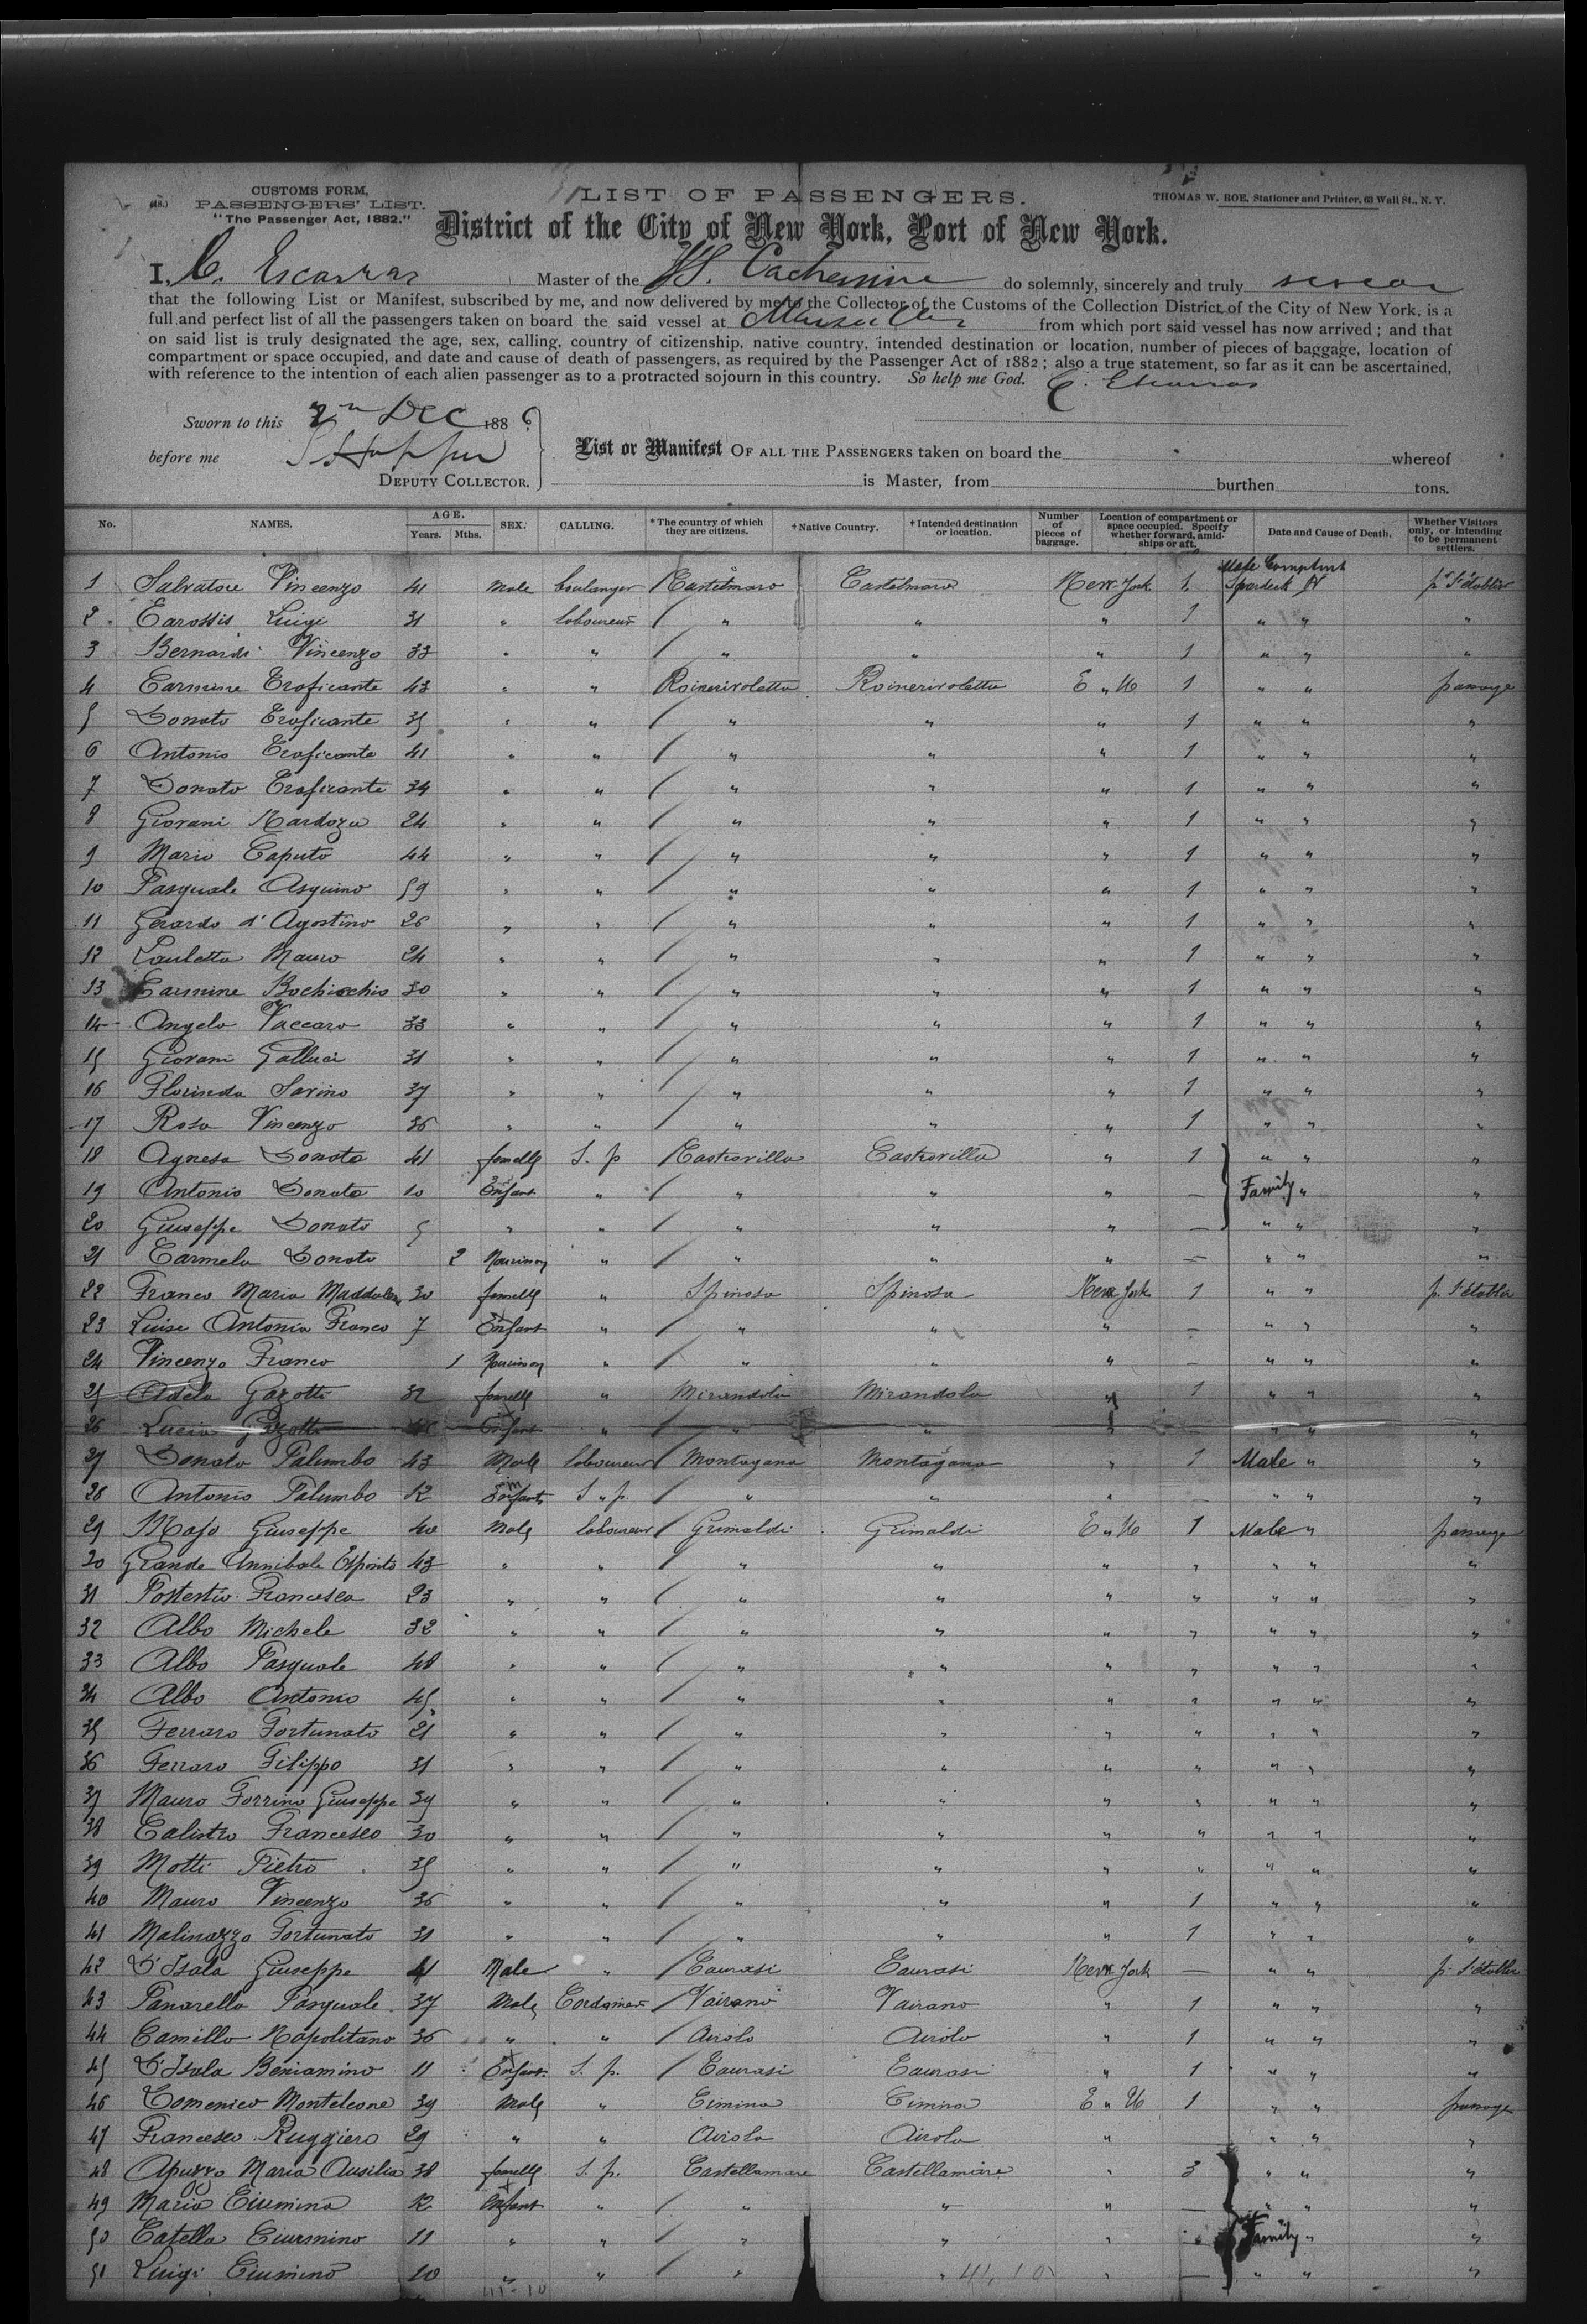 CUSTOMS FORM,
PASSENGERS' LIST.
"The Passenger Act, 1882."
LIST OF PASSENGERS.
THOMAS W. ROE, Stationer and Printer, 63 Wall St., N. Y.
District of the City of New York, Port of New York.
I, C. Escarras Master of the do solemnly, sincerely and truly swear
that the following List or Manifest, subscribed by me, and now delivered by me to the Collector of the Customs of the Collection District of the City of New York, is a
full and perfect list of all the passengers taken on board the said vessel at Marseilles from which port said vessel has now arrived; and that
on said list is truly designated the age, sex, calling, country of citizenship, native country, intended destination or location, number of pieces of baggage, location of
compartment or space occupied, and date and cause of death of passengers, as required by the Passenger Act of 1882; also a true statement, so far as it can be ascertained,
with reference to the intention of each alien passenger as to a protracted sojourn in this country. So help me God. C. Escarras
Sworn to this 2nd Dec 1886
before me
DEPUTY COLLECTOR.
List or Manifest OF ALL THE PASSENGERS taken on board the whereof
is Master, from burthen tons.
No. NAMES. AGE. Years. Mths. SEX. CALLING. * The country of which they are citizens. † Native Country. † Intended destination or location. Number of pieces of baggage. Location of compartment or space occupied. Specify whether forward, amidships or aft. Date and Cause of Death. Whether Visitors only, or intending to be permanent settlers.
1 Salvatore Vincenzo 41 Male boulanger Castelmaro Castelmaro New York 1 Male
2 Carossis Luigi 31 " laboureur " " " 1 " " "
3 Bernardi Vincenzo 33 " " " " " 1 " " "
4 Carmine Troficante 43 " " E " U 1 " " passage
5 Donato Troficante 35 " " " " " 1 " " "
6 Antonio Troficante 41 " " " " " 1 " " "
7 Donato Troficante 34 " " " " " 1 " " "
8 Giovani Nardoza 24 " " " " " 1 " " "
9 Mario Caputo 44 " " " " " 1 " " "
10 Pasquale Asquino 59 " " " " " 1 " " "
11 Gerardo d'Agostino 26 " " " " " 1 " " "
12 Pauletta Mauro 24 " " " " " 1 " " "
13 Carmine Bochicchio 30 " " " " " 1 " " "
14 Angelo Vaccaro 33 " " " " " 1 " " "
15 Giovani Galluci 31 " " " " " 1 " " "
16 Florinda Sarino 37 " " " " " 1 " " "
17 Rosa Vincenzo 36 " " " " " 1 " " "
18 Agnesa Donato 41 femelle S. p Castrovilla Castrovilla " 1 " " "
19 Antonio Donato 10 Enfant " " " " — Family " "
20 Giuseppe Donato 5 " " " " " — " " "
21 Carmela Donato 2 Nourrisson " " " " — " " "
22 Franco Maria Maddalena 30 femelle " Spinosa Spinosa New York 1 " " p. S'établir
23 Luise Antonia Franco 7 Enfant " " " " — " " "
24 Vincenzo Franco 1 Nourrisson " " " " — " " "
25 Adela Gazotti 32 femelle " Mirandola Mirandola " 1 " " "
26 Lucia Gazotti Enfant " " " " " " "
27 Donato Palumbo 43 Male laboureur Montagana Montagana " 1 Male " "
28 Antonio Palumbo 12 Enfant S " p. " " " — " " "
29 Majo Giuseppe 40 Male laboureur Grimaldi Grimaldi E " U 1 Male " passage
30 Grande Annibale Esposito 43 " " " " " " " " "
31 Francesco 23 " " " " " " " " "
32 Albo Michele 32 " " " " " " " " "
33 Albo Pasquale 48 " " " " " " " " "
34 Albo Antonio 45 " " " " " " " " "
35 Ferraro Fortunato 21 " " " " " " " " "
36 Ferraro Filippo 31 " " " " " " " " "
37 Mauro Forrino Giuseppe 39 " " " " " " " " "
38 Calistro Francesco 30 " " " " " " " " "
39 Motti Pietro 35 " " " " " " " " "
40 Mauro Vincenzo 36 " " " " " 1 " " "
41 Malinazzo Fortunato 31 " " " " " 1 " " "
42 D'Isala Giuseppe 41 Male " Taurasi Taurasi New York — " " p. S'établir
43 Panarella Pasquale 37 Male Cordonier Vairano Vairano " 1 " " "
44 Camillo Napolitano 36 " " Airola Airola " 1 " " "
45 D'Isala Beniamino 11 Enfant S. p. Taurasi Taurasi " 1 " " "
46 Domenico Monteleone 39 Male " Cimina Cimina E " U 1 " " passage
47 Francesco Ruggiero 29 " " Airola Airola " " " "
48 Apuzzo Maria Ausilia 38 femelle S. p. Castellamare Castellamare " 3 " " "
49 Maria Ciumina 12 Enfant " " " " — " " "
50 Catella Ciumino 11 " " " " " Family " "
51 Luigi Ciumino 10 " " " " " — " " "